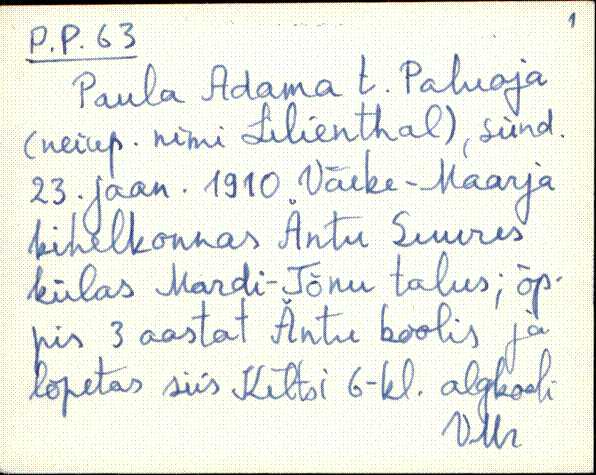 1
P.P. 63
Paula Adama t. Paluoja
(neiup. nimi Lilienthal), sünd.
23. jaan. 1910 Väike-Maarja
kihelkonnas Äntu Suures
külas Mardi-Jõnu talus; õp-
pis 3 aastat Äntu koolis ja
lõpetas siis Kiltsi 6-kl. algkooli